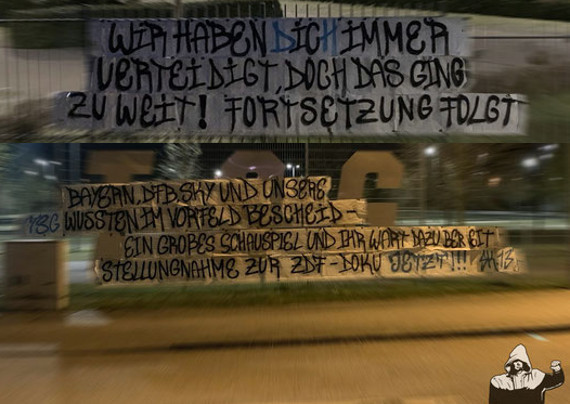 WIR HABEN DICH IMMER
VERTEIDIGT, DOCH DAS GING
ZU WEIT! FORTSETZUNG FOLGT
BAYERN, DFB SKY UND UNSERE
TSG WUSSTEN IM VORFELD BESCHEID -
EIN GROßES SCHAUSPIEL UND IHR WART DAZU BEREIT
STELLUNGNAHME ZUR ZDF-DOKU JETZT!!!